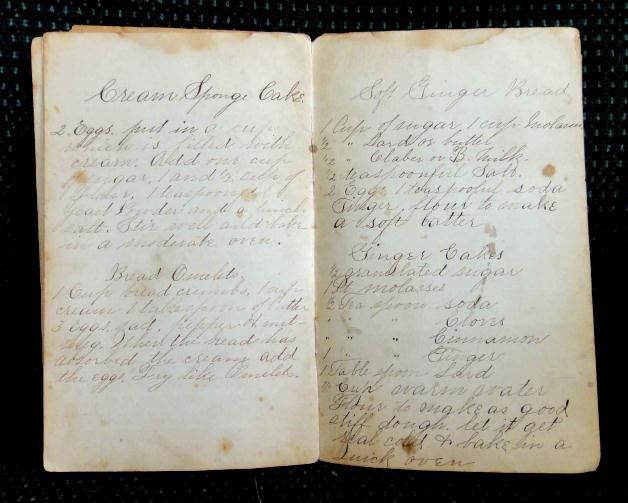 Cream Sponge Cake.
2 Eggs. put in a cup
which is filled with
cream. Add one cup
of sugar, 1 and ½ cup of
flour, 1 teaspoonful
Yeast Powder and a
salt. Stir well and bake
in a moderate oven.
Bread Omelet,
1 Cup bread crumbs, 1 cup
cream 1 teaspoon of butter
3 Eggs, salt, pepper & nut-
meg. When the bread has
absorbed the cream add
the eggs. Fry like Omelets.
Soft Ginger Bread
1 Cup of sugar 1 cup Molasses
½ " Lard or butter
½ " Claber or B. Milk.
½ teaspoonful Salt.
2 Eggs 1 teaspooful soda
Ginger, flour to make
a soft batter
Ginger Cakes
granulated sugar
molasses
2 Tea spoon soda
" " Cloves
" " Cinnamon
1 " " Ginger
1 Table spoon Lard
Cup warm water
Flour to make as good
stiff dough. let it get
real cold & bake in a
Quick oven